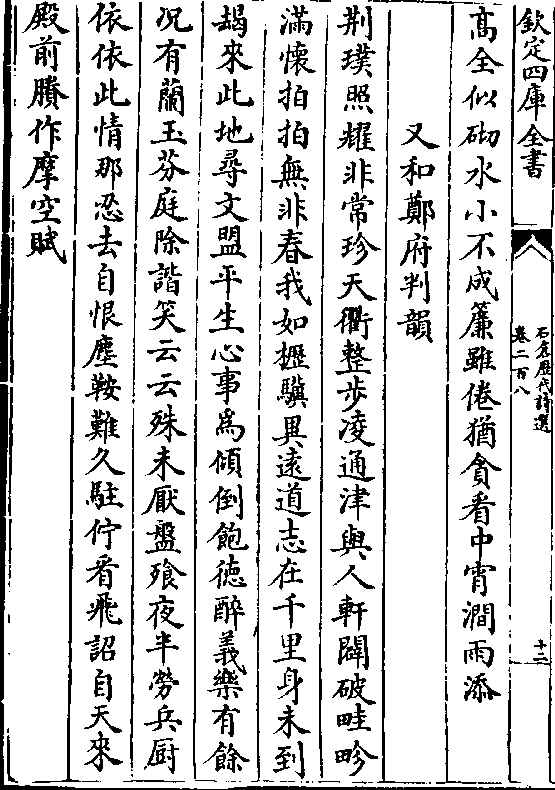 欽定四庫全書
石倉歴代詩選
卷二百八
十二
髙全似砌水小不成簾雖倦猶貪看中宵澗雨添
又和鄭府判韻
荆璞照耀非常珍天衢整步凌通津與人軒闢破畦畛
滿懷拍拍無非春我如櫪驥異逺道志在千里身未到
朅來此地尋文盟平生心事為傾倒飽徳醉義樂有餘
况有蘭玉芬庭除諧笑云云殊未厭盤飱夜半勞兵厨
依依此情那忍去自恨塵鞍難久駐佇看飛詔自天來
殿前賸作摩空賦